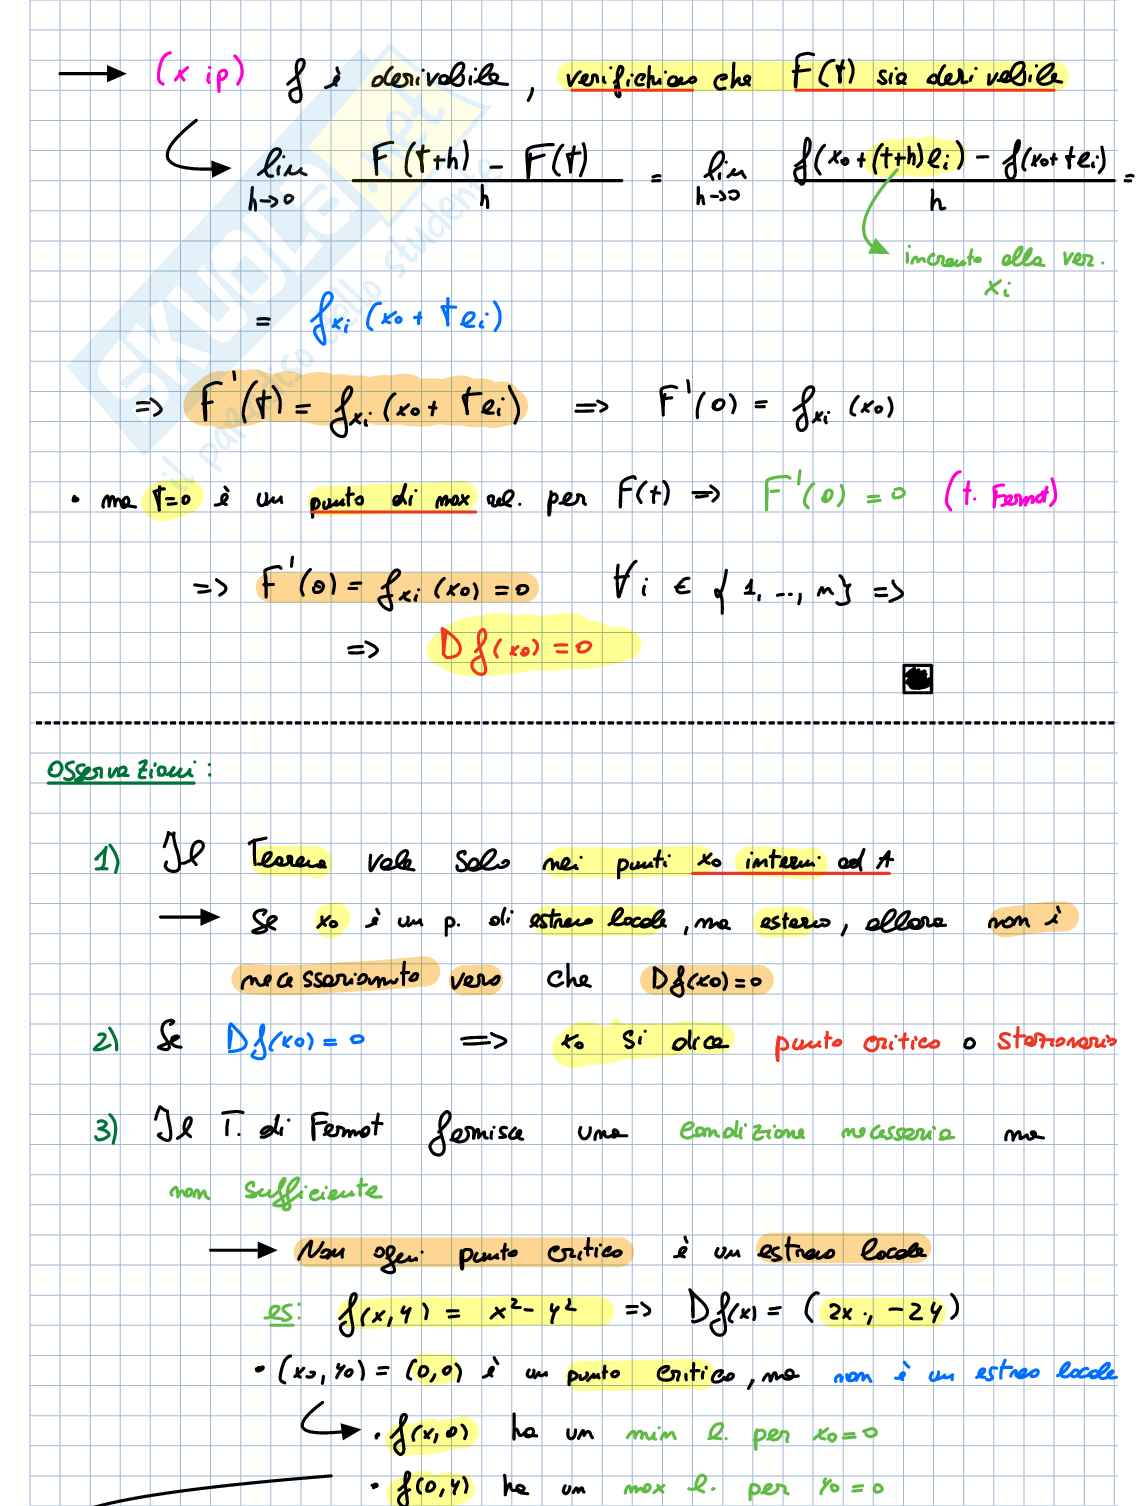 (x ip) f è derivabile, verifichiamo che F(t) sia derivabile
lim h→0 F(t+h) - F(t) / h = lim h→0 f(x0+(t+h)ei) - f(x0+tei) / h =
incremento alla var.
xi
= fxi (x0 + tei)
=> F'(t) = fxi (x0 + tei) => F'(0) = fxi (x0)
• ma t=0 è un punto di max rel. per F(t) => F'(0) = 0 (t. Fermat)
=> F'(0) = fxi (x0) = 0 ∀ i ∈ {1, .., n} =>
=> Df(x0) = 0
Osservazioni:
1) Il Teorema vale solo nei punti x0 interni ad A
→ Se x0 è un p. di estremo locale, ma esterno, allora non è
necessariamente vero che Df(x0)=0
2) Se Df(x0) = 0 => x0 si dice punto critico o stazionario
3) Il T. di Fermat fornisce una condizione necessaria ma
non sufficiente
→ Non ogni punto critico è un estremo locale
es: f(x,y) = x²- y² => Df(x) = (2x, -2y)
• (x0, y0) = (0,0) è un punto critico, ma non è un estremo locale
• f(x,0) ha un min l. per x0=0
• f(0,y) ha un max l. per y0=0
SKUOLA.net